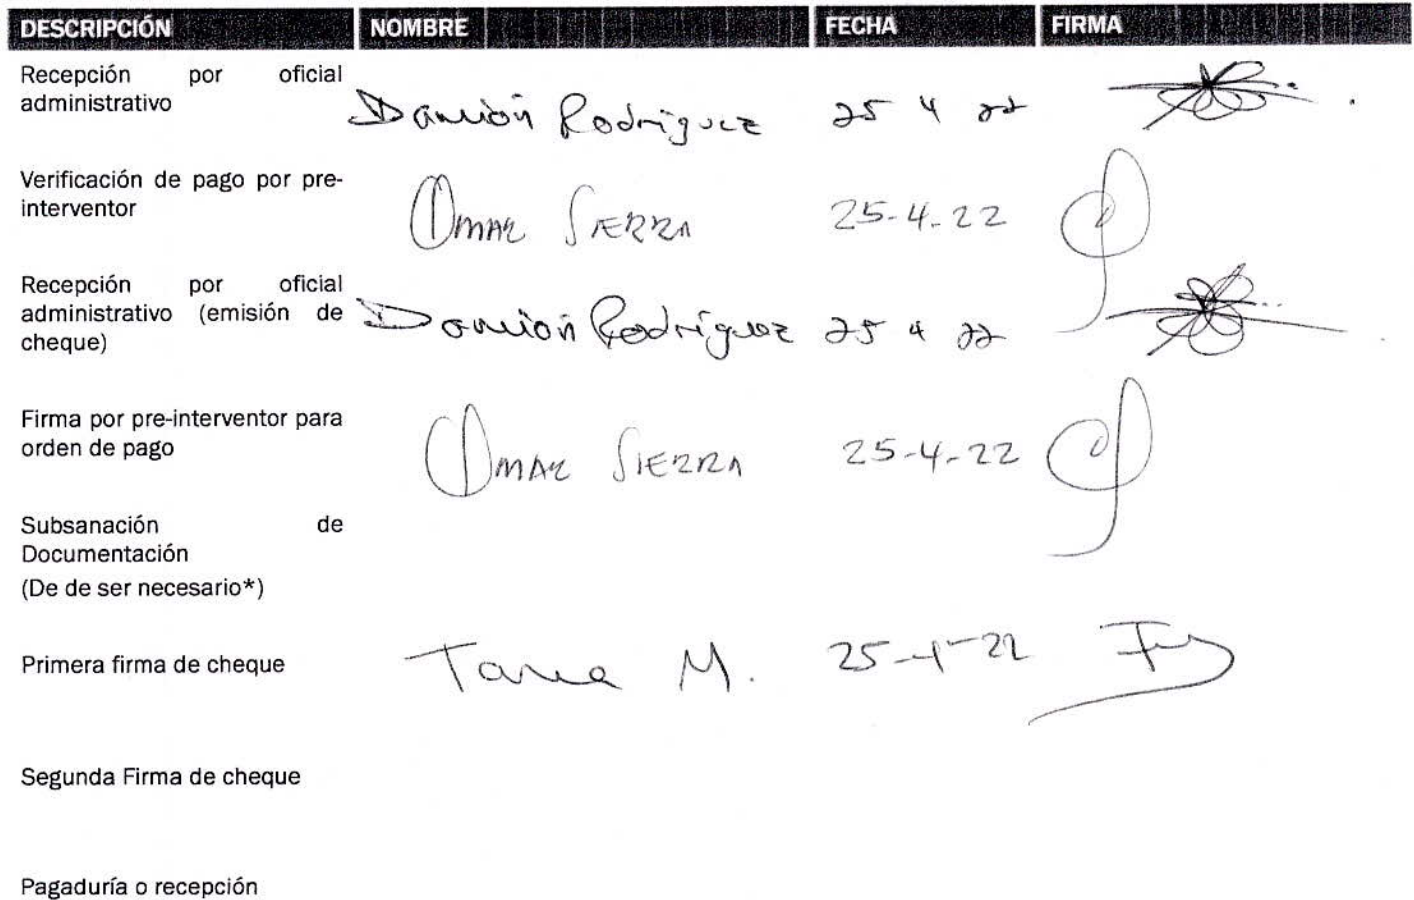 DESCRIPCIÓN NOMBRE FECHA FIRMA
Recepción por oficial
administrativo
Damión Rodríguez 25 4 22
Verificación de pago por pre-
interventor
Omar Sierra 25-4-22
Recepción por oficial
administrativo (emisión de
cheque)
Damión Rodríguez 25 4 22
Firma por pre-interventor para
orden de pago
Omar Sierra 25-4-22
Subsanación de
Documentación
(De de ser necesario*)
Primera firma de cheque M. 25-4-22
Segunda Firma de cheque
Pagaduría o recepción